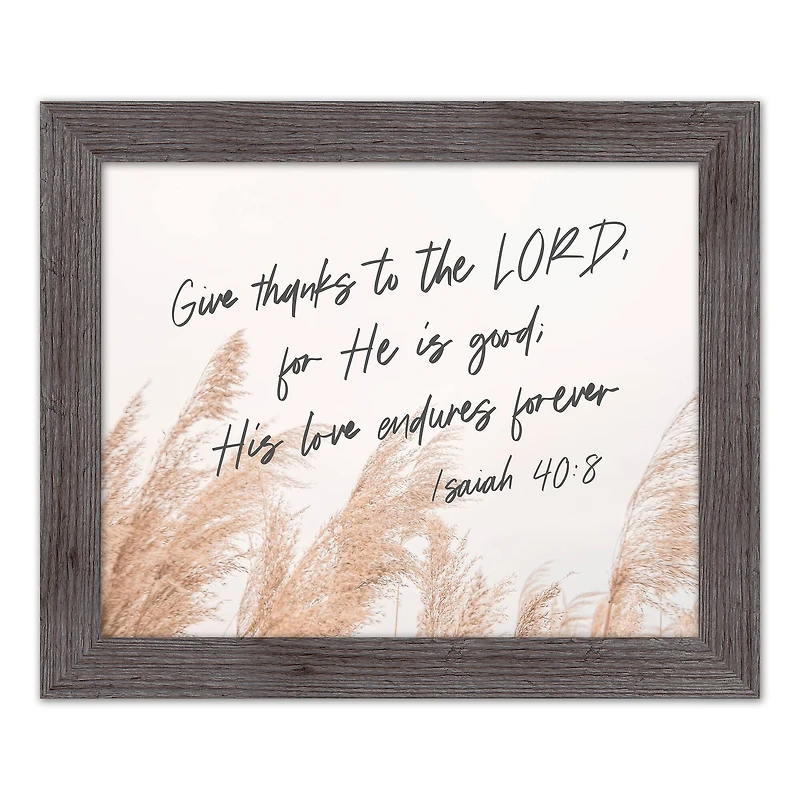 Give thanks to the LORD,
for He is good;
His love endures forever
Isaiah 40:8